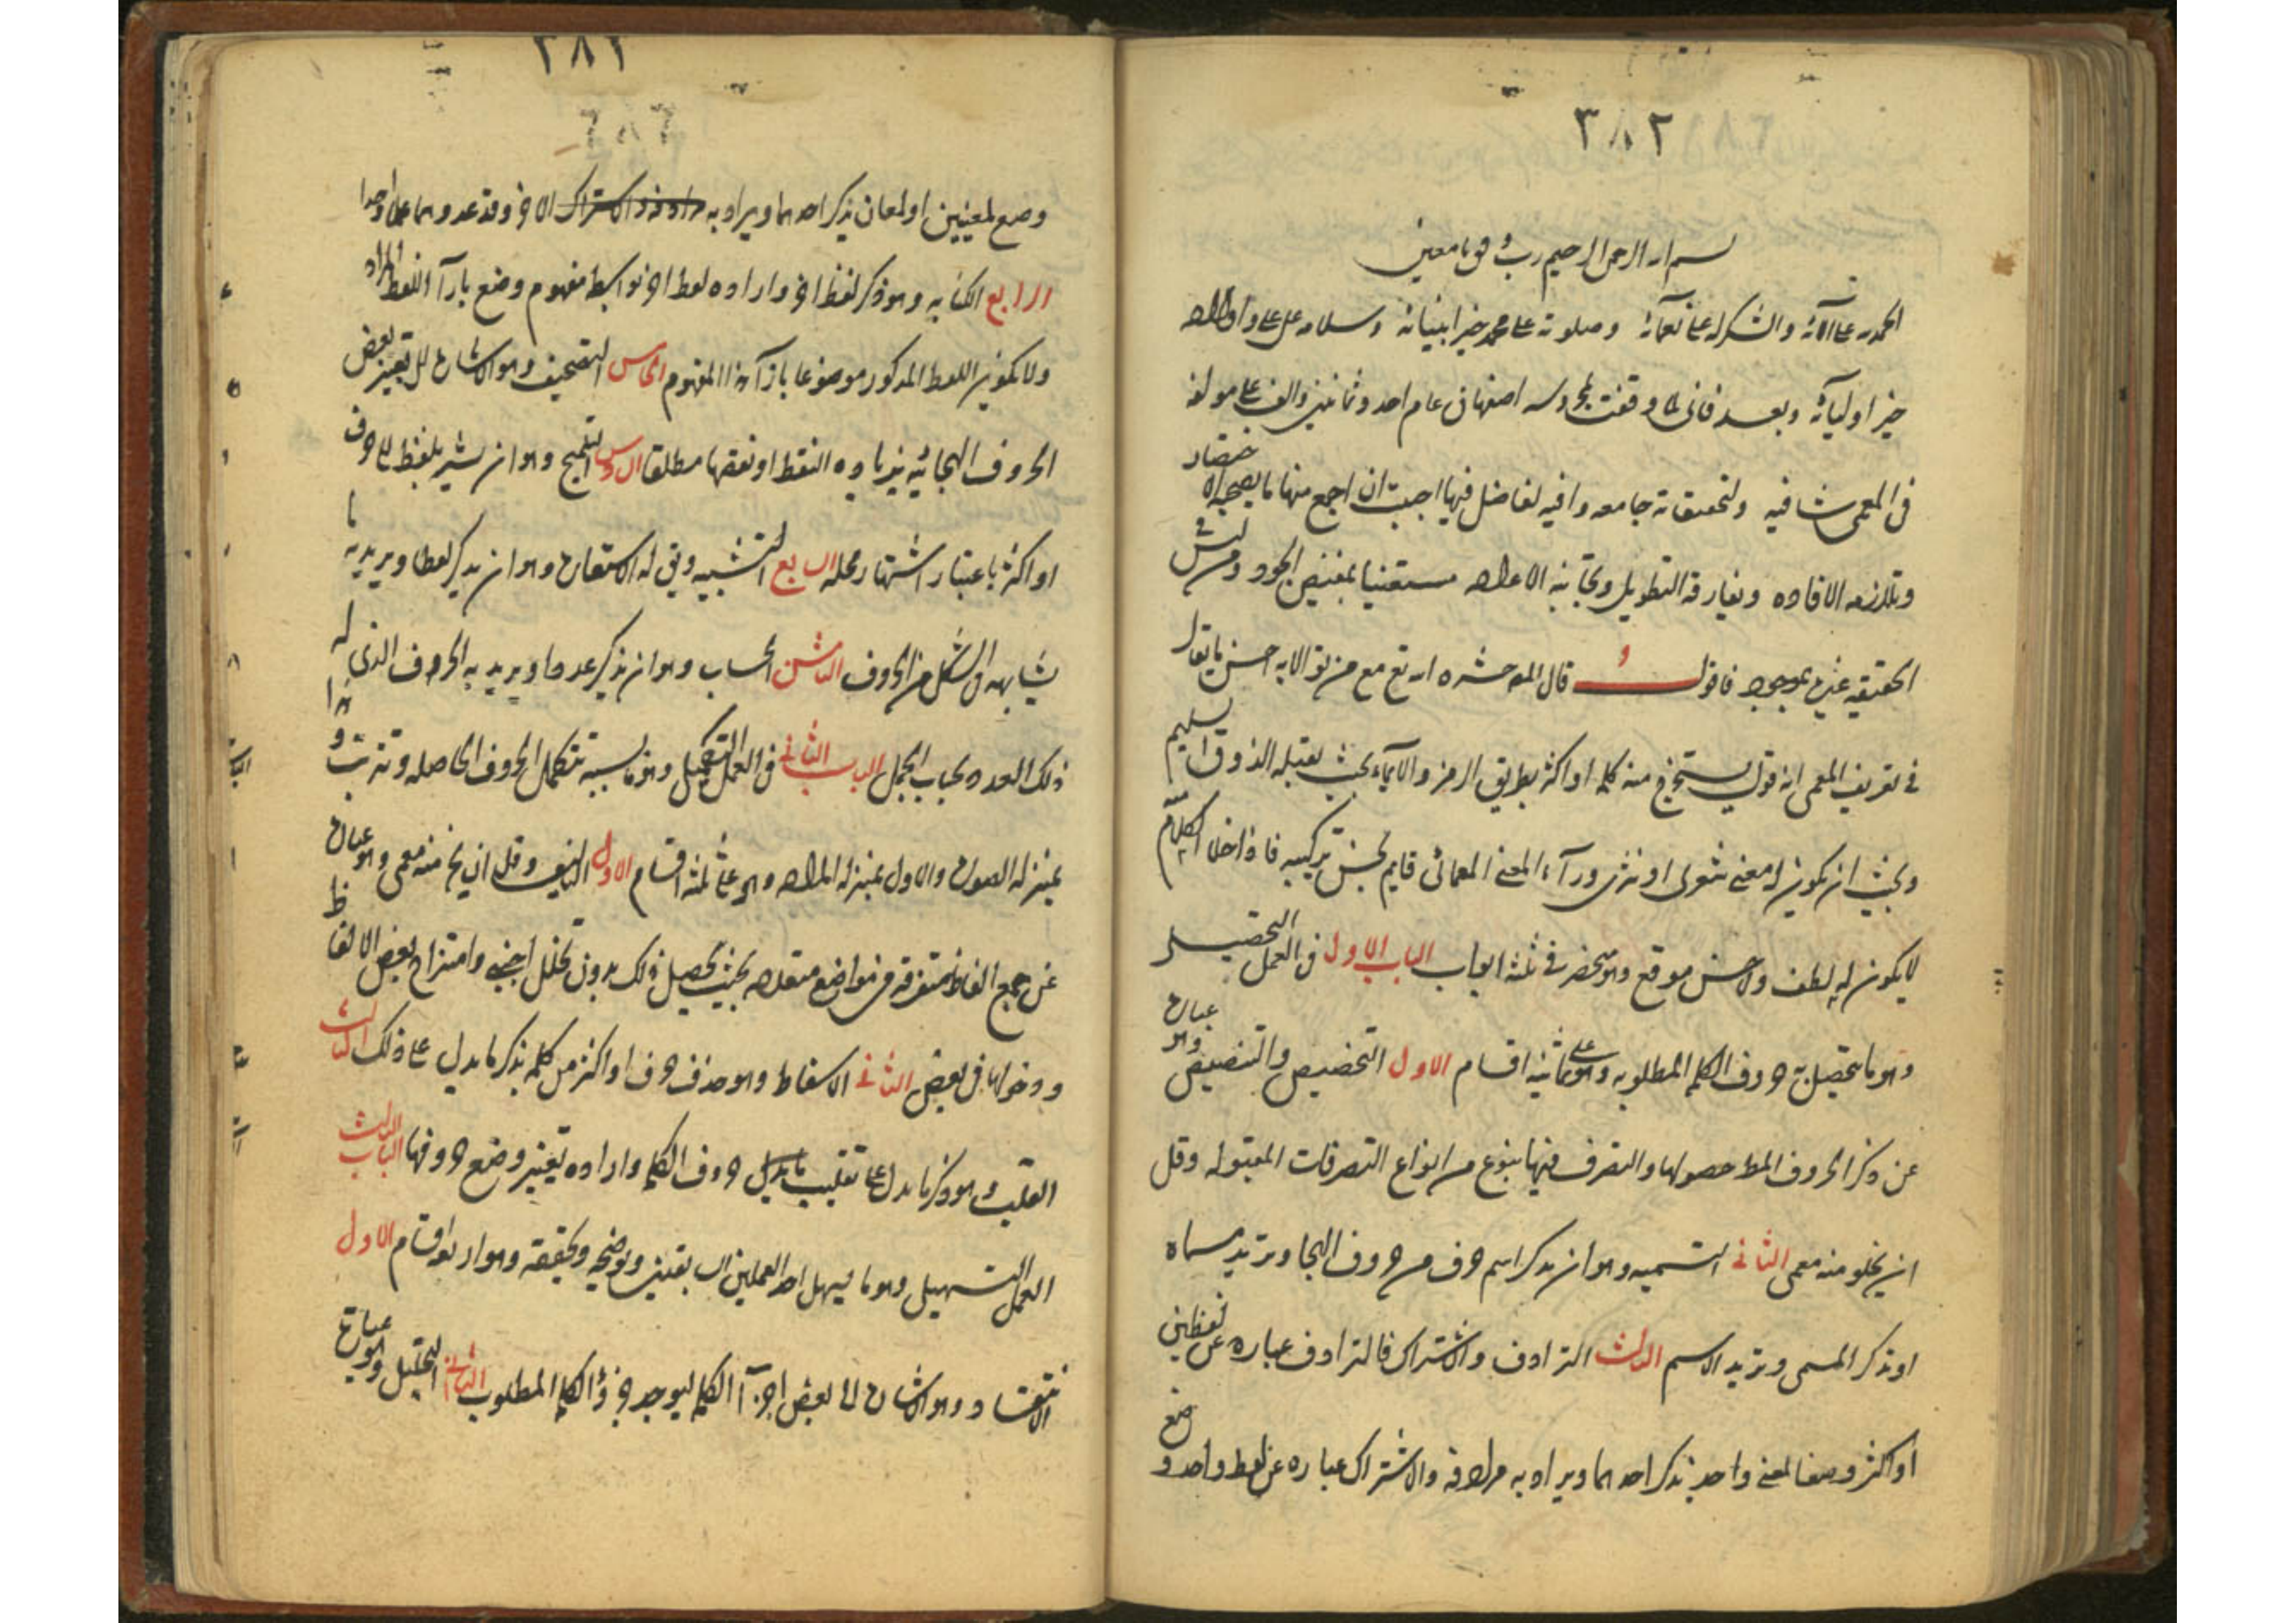 ٣٨٢
بسم الله الرحمن الرحيم رب وفق يا معين
الحمد لله على آلائه والشكر له على نعمائه وصلوته على محمد خير انبيائه وسلامه على علي واولاده
خير اوليائه وبعد فاني لما وقفت بمحروسه اصفهان عام احد وثمانين والف على مولفه
في المعمى شافيه ولتحقيقاته جامعه وافيه لفاضل فيها احببت ان اجمع منها ما يصحبه الاختصار
وتلازمه الافاده ومفارقة التطويل ومجانبه الاعاده مستعينا بمفيض الجود ومن ليس في
الحقيقه غيره بموجود فاقول قال المو حشره الله تع مع من تولاه احسن ما يقال
في تعريف المعمى انه قول يستخرج منه كلمه او اكثر بطريق الرمز والايماء بحيث يقبله الذوق السليم
وبحيث ان يكون له معنى شعري او نثري وراء المعنى المعمائي قايم بحسن تركيبه فاذا خلا الكلام
لا يكون له لطف ولا حسن موقع وهو منحصر في ثلثه ابواب الباب الاول في العمل التحصيلي
وهو ما يتحصل به حروف الكلمه المطلوبه وهو على ثمانيه اقسام الاول التخصيص والتنصيص وهو عبارة
عن ذكر الحروف المط حصولها والتصرف فيها بنوع من انواع التصرفات المقبوله وقل
ان يخلو منه معمى الثاني التسميه وهو ان يذكر اسم حرف من حروف الهجا ويريد مسماه
او يذكر المسمى ويريد الاسم الثالث الترادف والاشتراك فالترادف عباره عن لفظين
او اكثر وضعا لمعنى واحد يذكر احدهما ويراد به مرادفه والاشتراك عباره عن لفظ واحد وضع
٣٨٢
وضع لمعنيين او لمعان يذكر احدهما ويراد به الاخر وقد عدوهما عملا واحدا
الرابع الكنايه وهو ذكر لفظ اخر واراده لفظ اخر بواسطه مفهوم وضع بازآء اللفظ المراد
ولا يكون اللفظ المذكور موضوعا بازآء هذا المفهوم الخامس التصحيف وهو الاشارة الى تغيير بعض
الحروف الهجائيه بزياده النقط او نقصها مطلقا السادس التلميح وهو ان يشير بلفظ الى حرف
او اكثر باعتبار اشتهار محله السابع التشبيه ويق له الاستعارة وهو ان يذكر لفظا ويريد به ما
يشابهه في الشكل من الحروف الثامن الحساب وهو ان يذكر عددا ويريد به الحروف الذي له
ذلك العدد بحساب الجمل الباب الثاني في العمل التكميلي وهو ما بسببه تتكمل الحروف الحاصله وتترتب وهذا
بمنزله الصورة والاول بمنزله الماده وهو على ثلثه اقسام الاول التاليف وقل ان يخ منه معمى وهو عبارة
عن جمع الفاظ متفرقه في مواضع متعدده بحيث يحصل ذلك بدون تخلل اجنبي وامتزاج بعض الالفاظ
ودخولها في بعض الثاني الاسقاط وهو حذف حرف او اكثر من كلمه بذكر ما يدل على ذلك الثالث
القلب وهو ذكر ما يدل على تقليب حروف الكلمه واراده تغيير وضع حروفها الباب الثالث
العمل التسهيلي وهو ما يسهل احد العملين السابقين ويوضحه ويحققه وهو اربعه اقسام الاول
الانتقاد وهو الاشارة الى بعض اجزآء الكلمه ليوجد جزؤ الكلمه المطلوب الثاني التحليل وهو عبارة